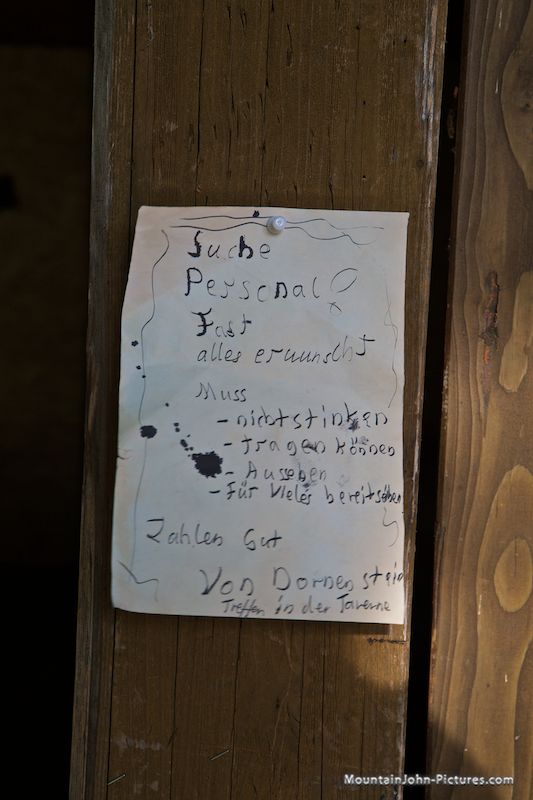 Suche
Personal ♀
Fast
alles erwunscht
Muss
- nicht stinken
- tragen können
- Ausseben
- Für vieles bereit sehen
Zahlen Gut
Von Dornenstein
Treffen in der Taverne
MountainJohn-Pictures.com